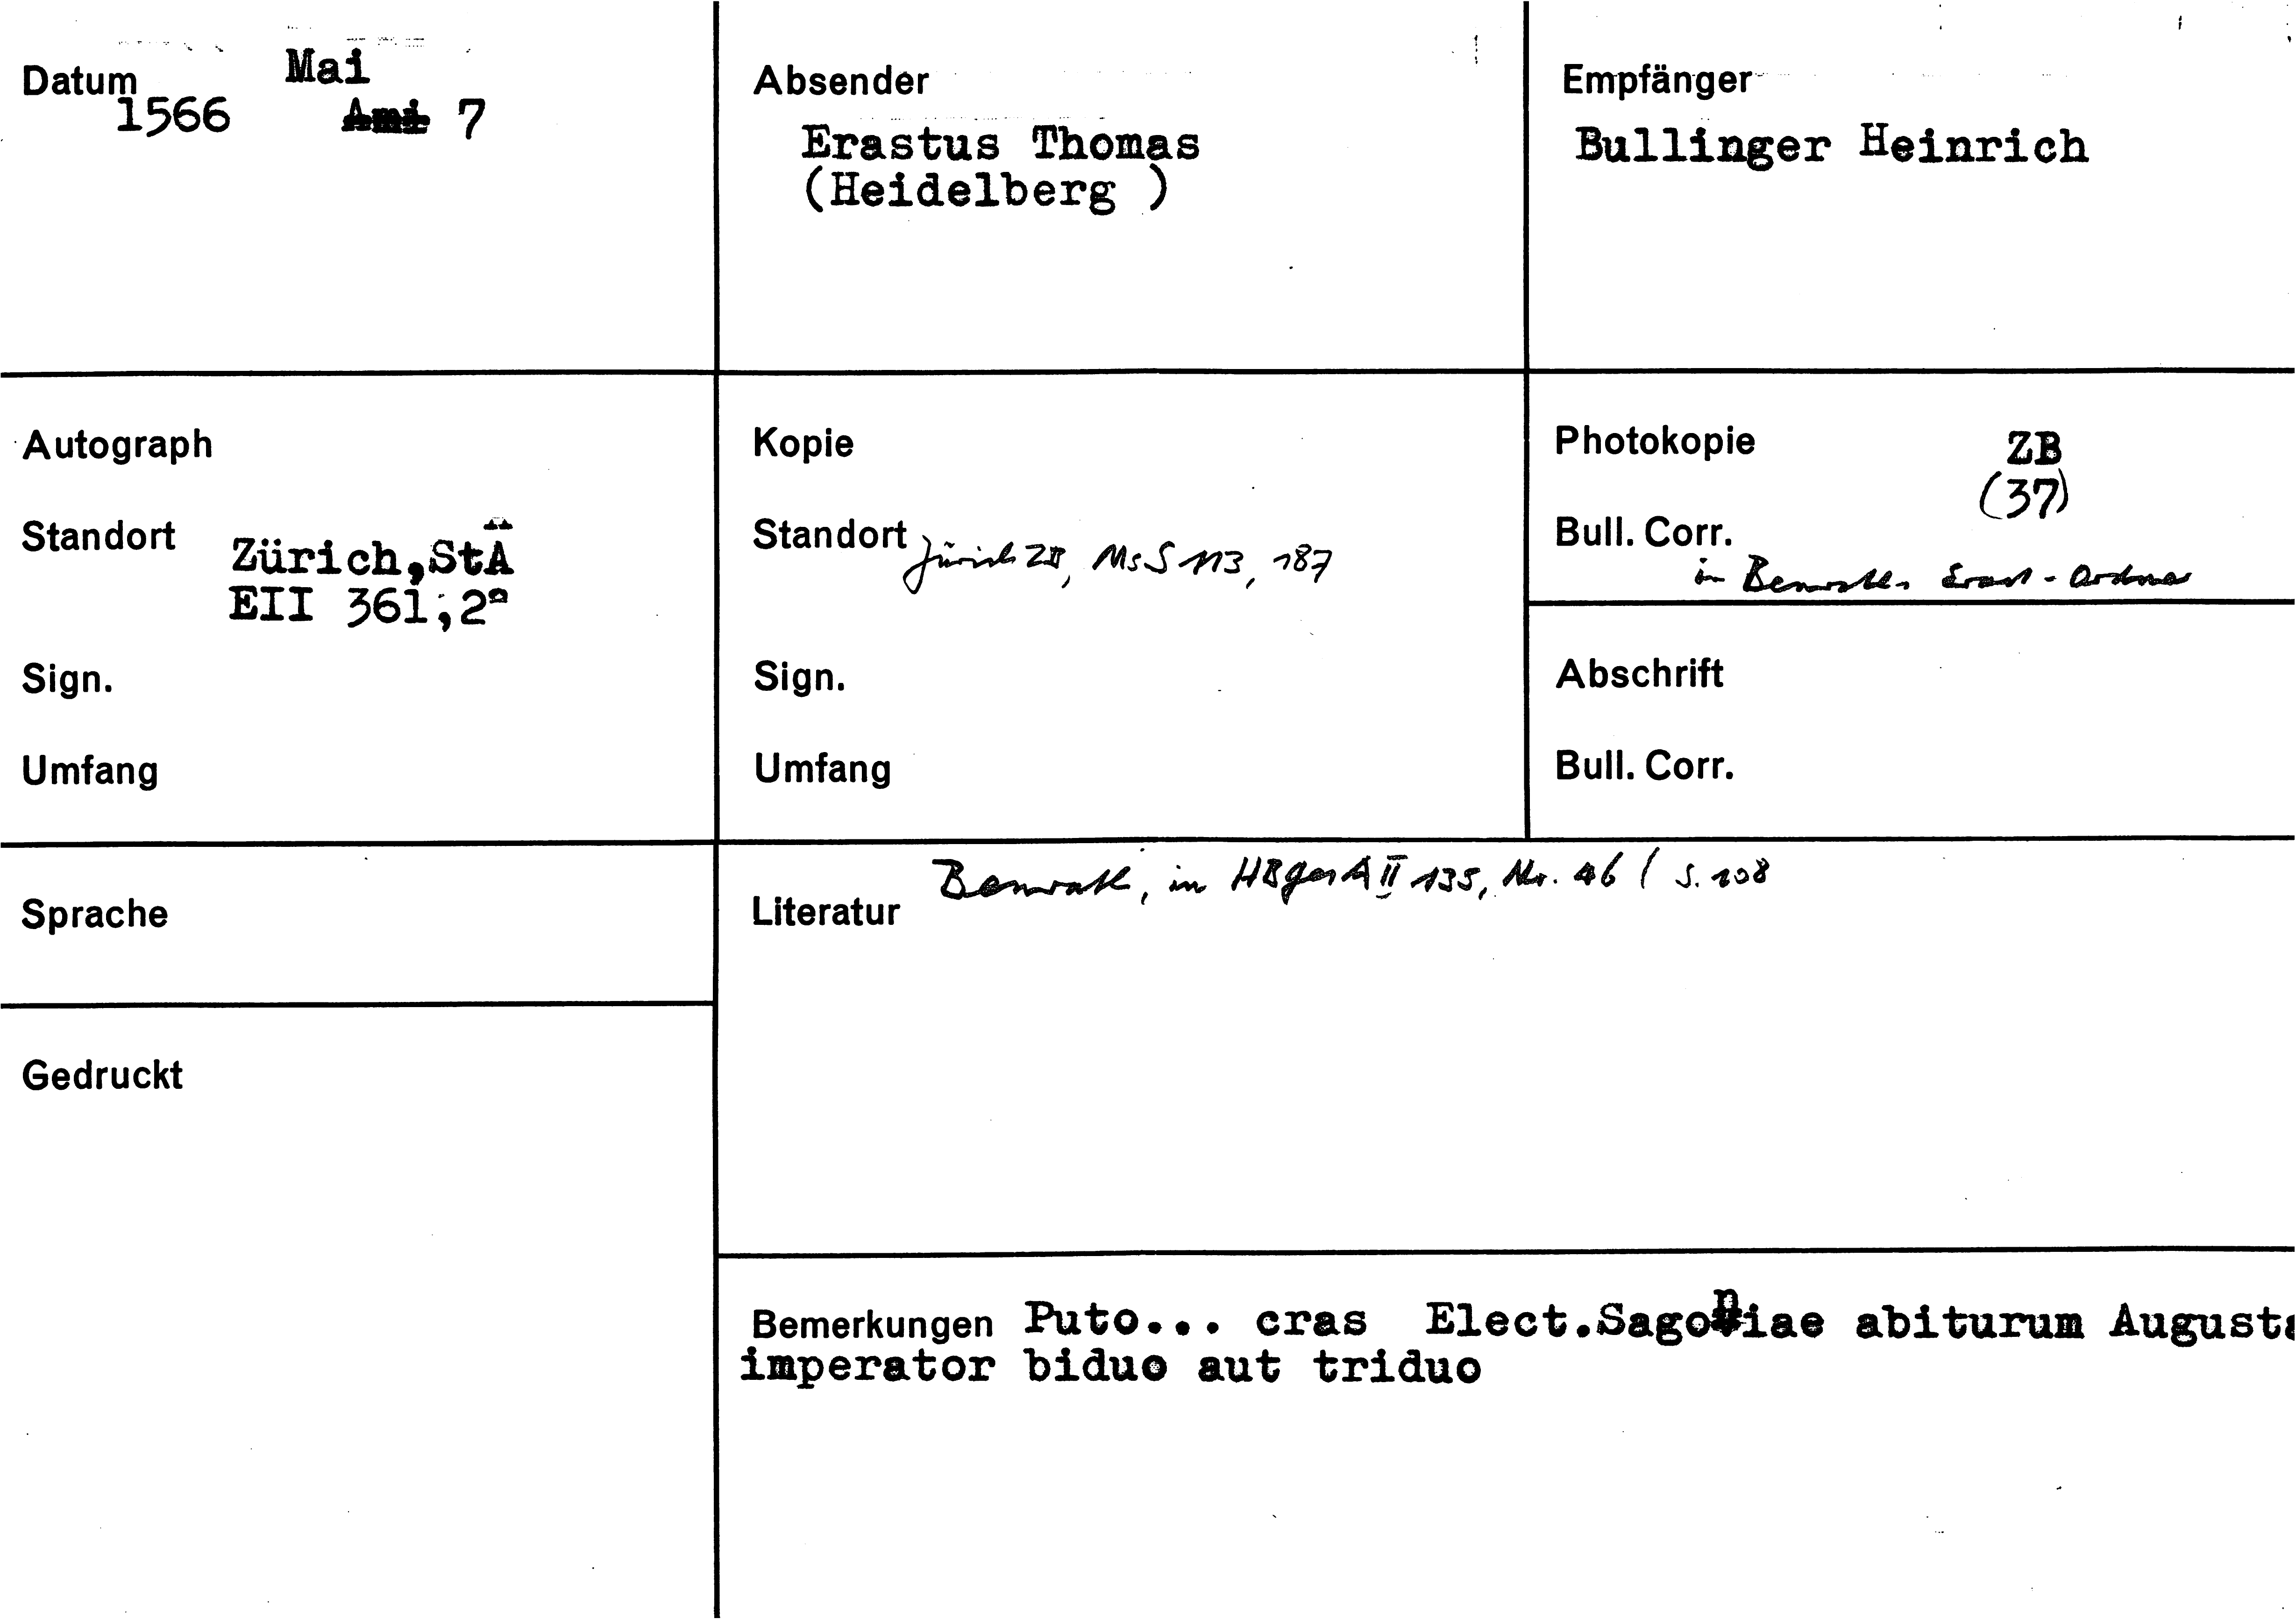 Datum
Mai
1566 Ami 7
Absender
Erastus Thomas
(Heidelberg )
Empfänger
Bullinger Heinrich
Autograph
Standort Zürich,StA
EII 361,2a
Sign.
Umfang
Kopie
Standort Zürich ZB, Ms S 113, 187
Sign.
Umfang
Photokopie ZB
(37)
Bull. Corr.
in Benraths Erast-Ordner
Abschrift
Bull. Corr.
Sprache
Gedruckt
Literatur Benrath, in HBgesA II 135, Nr. 46 / S. 108
Bemerkungen Puto... cras Elect.Sagoniae abiturum Augusta
imperator biduo aut triduo